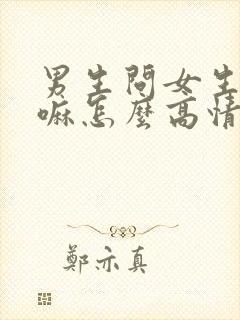 男生問女生
嘛怎麼高情
鄭亦真